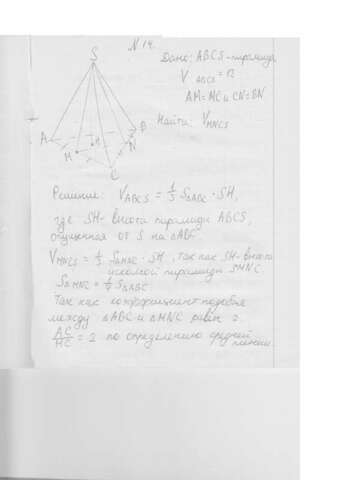 N 14.
Дано: ABCS - пирамида
V ABCS = 12
AM = MC и CN = BN
Найти: V MNCS
S
A
B
M
H
N
C
Решение: V ABCS = 1/3 S△ABC · SH,
где SH - высота пирамиды ABCS,
опущенная от S на △ABC.
V MNCS = 1/3 S△MNC · SH, так как SH - высота
искомой пирамиды SMNC.
S△MNC = 1/4 S△ABC
Так как коэффициент подобия
между △ABC и △MNC равен 2.
AC/MC = 2 по определению средней
линии.